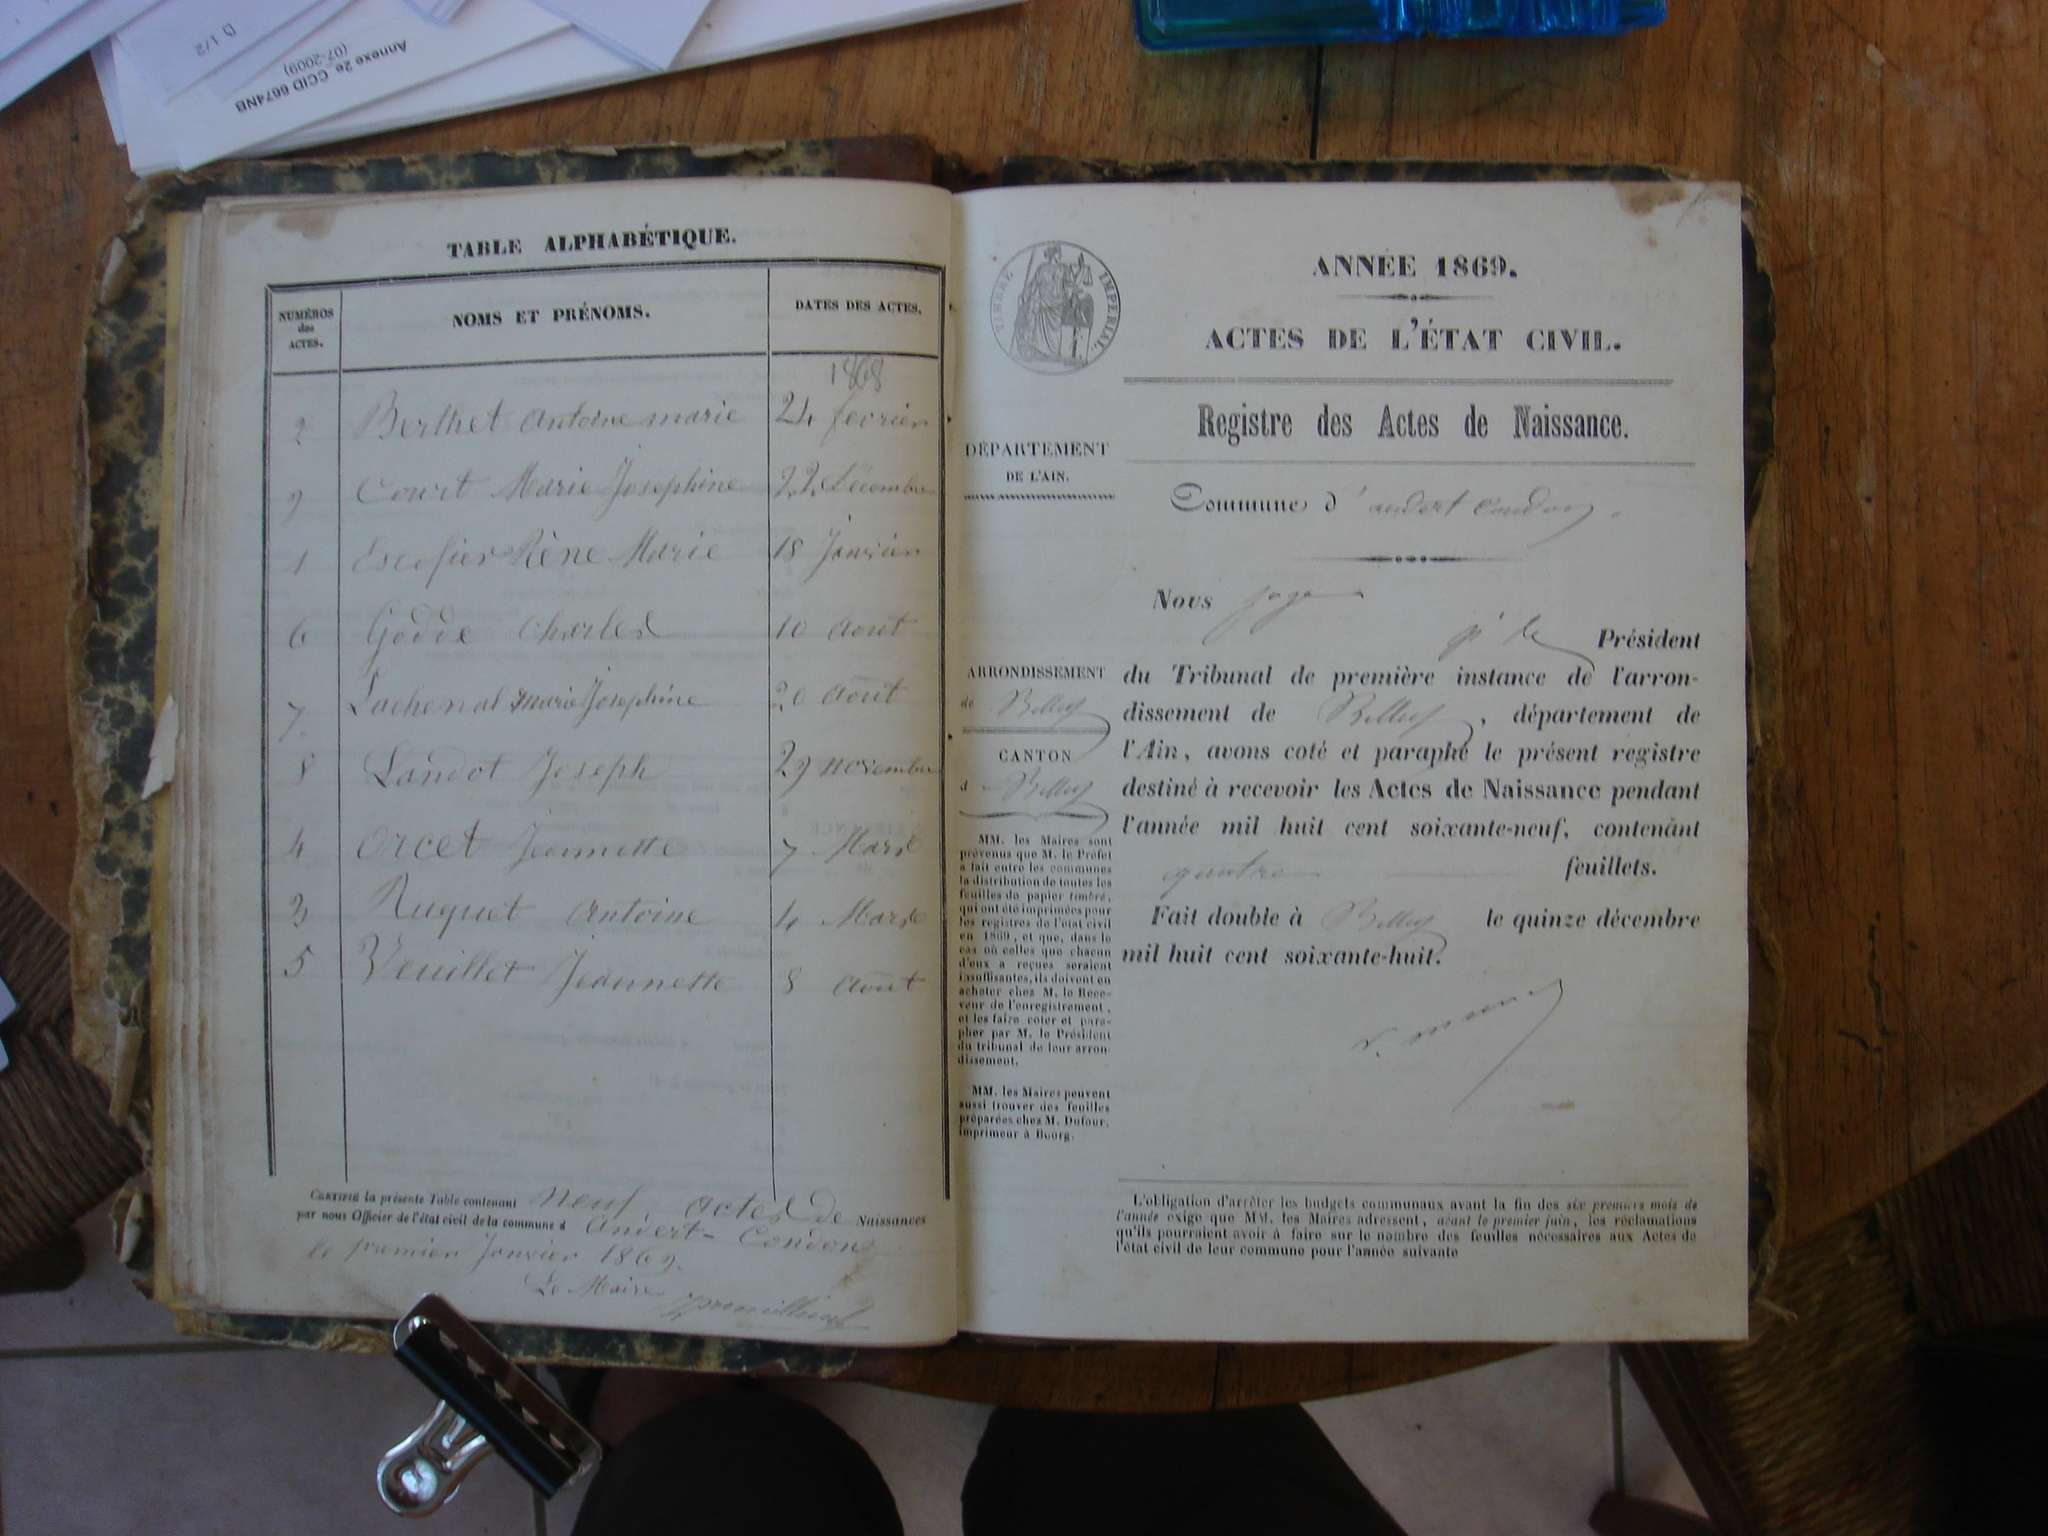 D 1/2
Annexe 2e CCID 6674NB
(07-2009)
TABLE ALPHABÉTIQUE.
NUMÉROS des ACTES.
NOMS ET PRÉNOMS.
DATES DES ACTES.
1868
2 Berthet Antoine marie 24 fevrier
9 Court Marie Josephine 22 Décembre
1 Escofier Rène Marie 18 Janvier
6 Godde Charles 10 Aout
7. Lachenal Marie Josephine 20 Août
8 Landot Joseph 29 novembre
4 Orcet Jeannette 7 Mars
3 Ruquet Antoine 4 Mars
5 Veuillet Jeannette 8 Août
CERTIFIÉ la présente Table contenant neuf actes de Naissances
par nous Officier de l'état civil de la commune d Andert-Condon
le premier Janvier 1869.
Le Maire
TIMBRE IMPÉRIAL
ANNÉE 1869.
ACTES DE L'ÉTAT CIVIL.
Registre des Actes de Naissance.
DÉPARTEMENT
DE L'AIN.
Commune d'andert Condon.
Nous
Président
du Tribunal de première instance de l'arron-
dissement de Belley, département de
l'Ain, avons coté et paraphé le présent registre
destiné à recevoir les Actes de Naissance pendant
l'année mil huit cent soixante-neuf, contenant
quatre feuillets.
Fait double à Belley le quinze décembre
mil huit cent soixante-huit.
ARRONDISSEMENT
de Belley
CANTON
d Belley
MM. les Maires sont
prévenus que M. le Préfet
a fait entre les communes
la distribution de toutes les
feuilles du papier timbré,
qui ont été imprimées pour
les registres de l'état civil
en 1869, et que, dans le
cas où celles que chacun
d'eux a reçues seraient
insuffisantes, ils doivent en
acheter chez M. le Rece-
veur de l'enregistrement,
et les faire coter et para-
pher par M. le Président
du tribunal de leur arron-
dissement.
MM. les Maires peuvent
aussi trouver des feuilles
préparées chez M. Dufour,
imprimeur à Bourg.
L'obligation d'arrêter les budgets communaux avant la fin des six premiers mois de
l'année exige que MM. les Maires adressent, avant le premier juin, les réclamations
qu'ils pourraient avoir à faire sur le nombre des feuilles nécessaires aux Actes de
l'état civil de leur commune pour l'année suivante